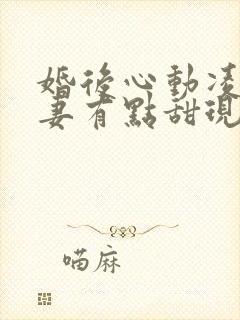 婚後心動凌
妻有點甜現
喵麻